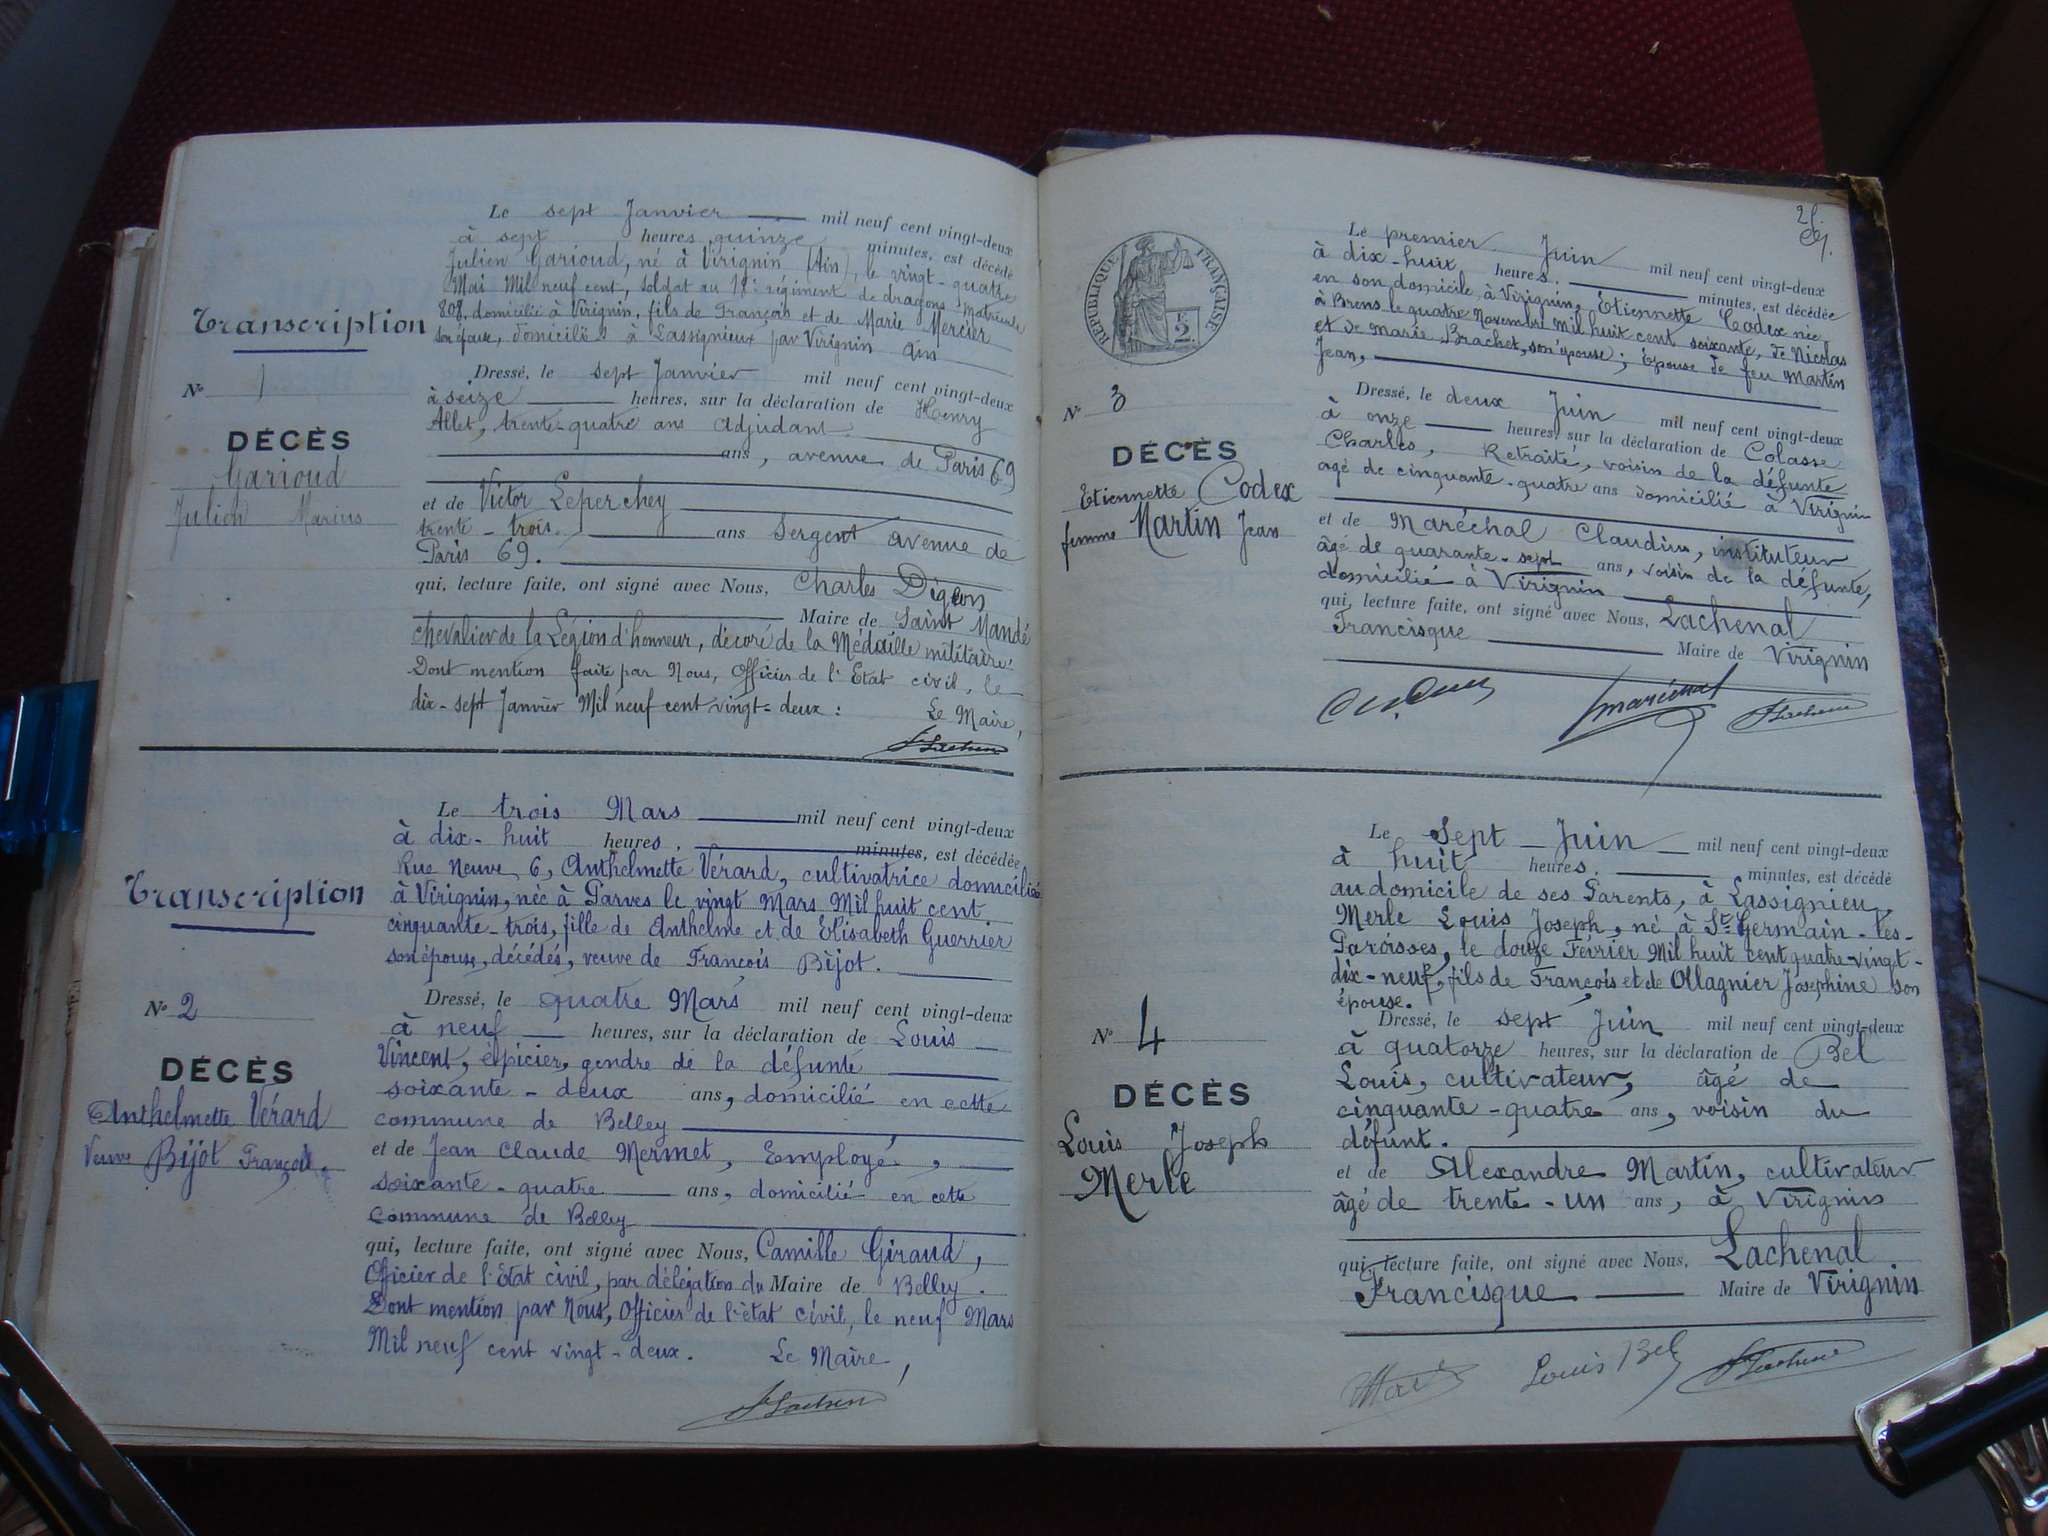 Le sept Janvier mil neuf cent vingt-deux
à sept heures quinze minutes, est décédé
Julien Garioud, né à Virignin (Ain), le vingt-quatre
Mai Mil neuf cent, soldat au régiment de dragons, Matricule
808, domicilié à Virignin, fils de François et de Marie Mercier
son épouse, domiciliés à Lassignieux par Virignin Ain
Transcription
Dressé, le sept Janvier mil neuf cent vingt-deux
N° 1
à seize heures, sur la déclaration de Henry
Allet, trente-quatre ans Adjudant
DÉCÈS
ans, avenue de Paris 69
Garioud
Julien Marius
et de Victor Leperchey
trente-trois ans Sergent avenue de
Paris 69.
qui, lecture faite, ont signé avec Nous, Charles Digeon
Maire de Saint Mandé
chevalier de la Légion d'honneur, décoré de la Médaille militaire.
Dont mention faite par Nous, Officier de l'Etat civil, le
dix-sept Janvier Mil neuf cent vingt-deux :
Le Maire,
Le trois Mars mil neuf cent vingt-deux
à dix-huit heures. minutes, est décédée
Rue Neuve, 6, Anthelmette Vérard, cultivatrice domiciliée
à Virignin, née à Parves le vingt Mars Mil huit cent
cinquante-trois, fille de Anthelme et de Elisabeth Guerrier
son épouse, décédés, veuve de François Bijot.
Transcription
Dressé, le quatre Mars mil neuf cent vingt-deux
N° 2
à neuf heures, sur la déclaration de Louis
Vincent, épicier, gendre de la défunte
DÉCÈS
soixante-deux ans, domicilié en cette
commune de Belley
Anthelmette Vérard
Veuve Bijot François
et de Jean Claude Mermet, Employé,
soixante-quatre ans, domicilié en cette
commune de Belley
qui, lecture faite, ont signé avec Nous, Camille Giraud,
Officier de l'Etat civil, par délégation du Maire de Belley.
Dont mention par Nous, Officier de l'état civil, le neuf Mars
Mil neuf cent vingt-deux.
Le Maire,
RÉPUBLIQUE FRANÇAISE
2
Le premier Juin mil neuf cent vingt-deux
à dix-huit heures. minutes, est décédée
en son domicile, à Virignin, Etiennette Codex née
à Brens le quatre Novembre Mil huit cent soixante, de Nicolas
et de marie Brachet, son épouse; Epouse de feu Martin
Jean,
N° 3
Dressé, le deux Juin mil neuf cent vingt-deux
à onze heures, sur la déclaration de Colasse
Charles, Retraité, voisin de la défunte
DÉCÈS
âgé de cinquante-quatre ans domicilié à Virignin
Etiennette Codex
femme Martin Jean
et de Maréchal Claudius, instituteur
âgé de quarante-sept ans, voisin de la défunte,
domicilié à Virignin
qui, lecture faite, ont signé avec Nous, Lachenal
Francisque Maire de Virignin
Le Sept Juin mil neuf cent vingt-deux
à huit heures. minutes, est décédé
au domicile de ses Parents, à Lassignieu,
Merle Louis Joseph, né à St Germain-les-
Paroisses, le douze Février Mil huit cent quatre-vingt-
dix-neuf, fils de François et de Ollagnier Josephine son
épouse.
N° 4
Dressé, le sept Juin mil neuf cent vingt-deux
à quatorze heures, sur la déclaration de Bel
Louis, cultivateur, âgé de
DÉCÈS
cinquante-quatre ans, voisin du
défunt.
Louis Joseph
Merle
et de Alexandre Martin, cultivateur
âgé de trente-un ans, à Virignin
qui, lecture faite, ont signé avec Nous, Lachenal
Francisque Maire de Virignin
Louis Bel